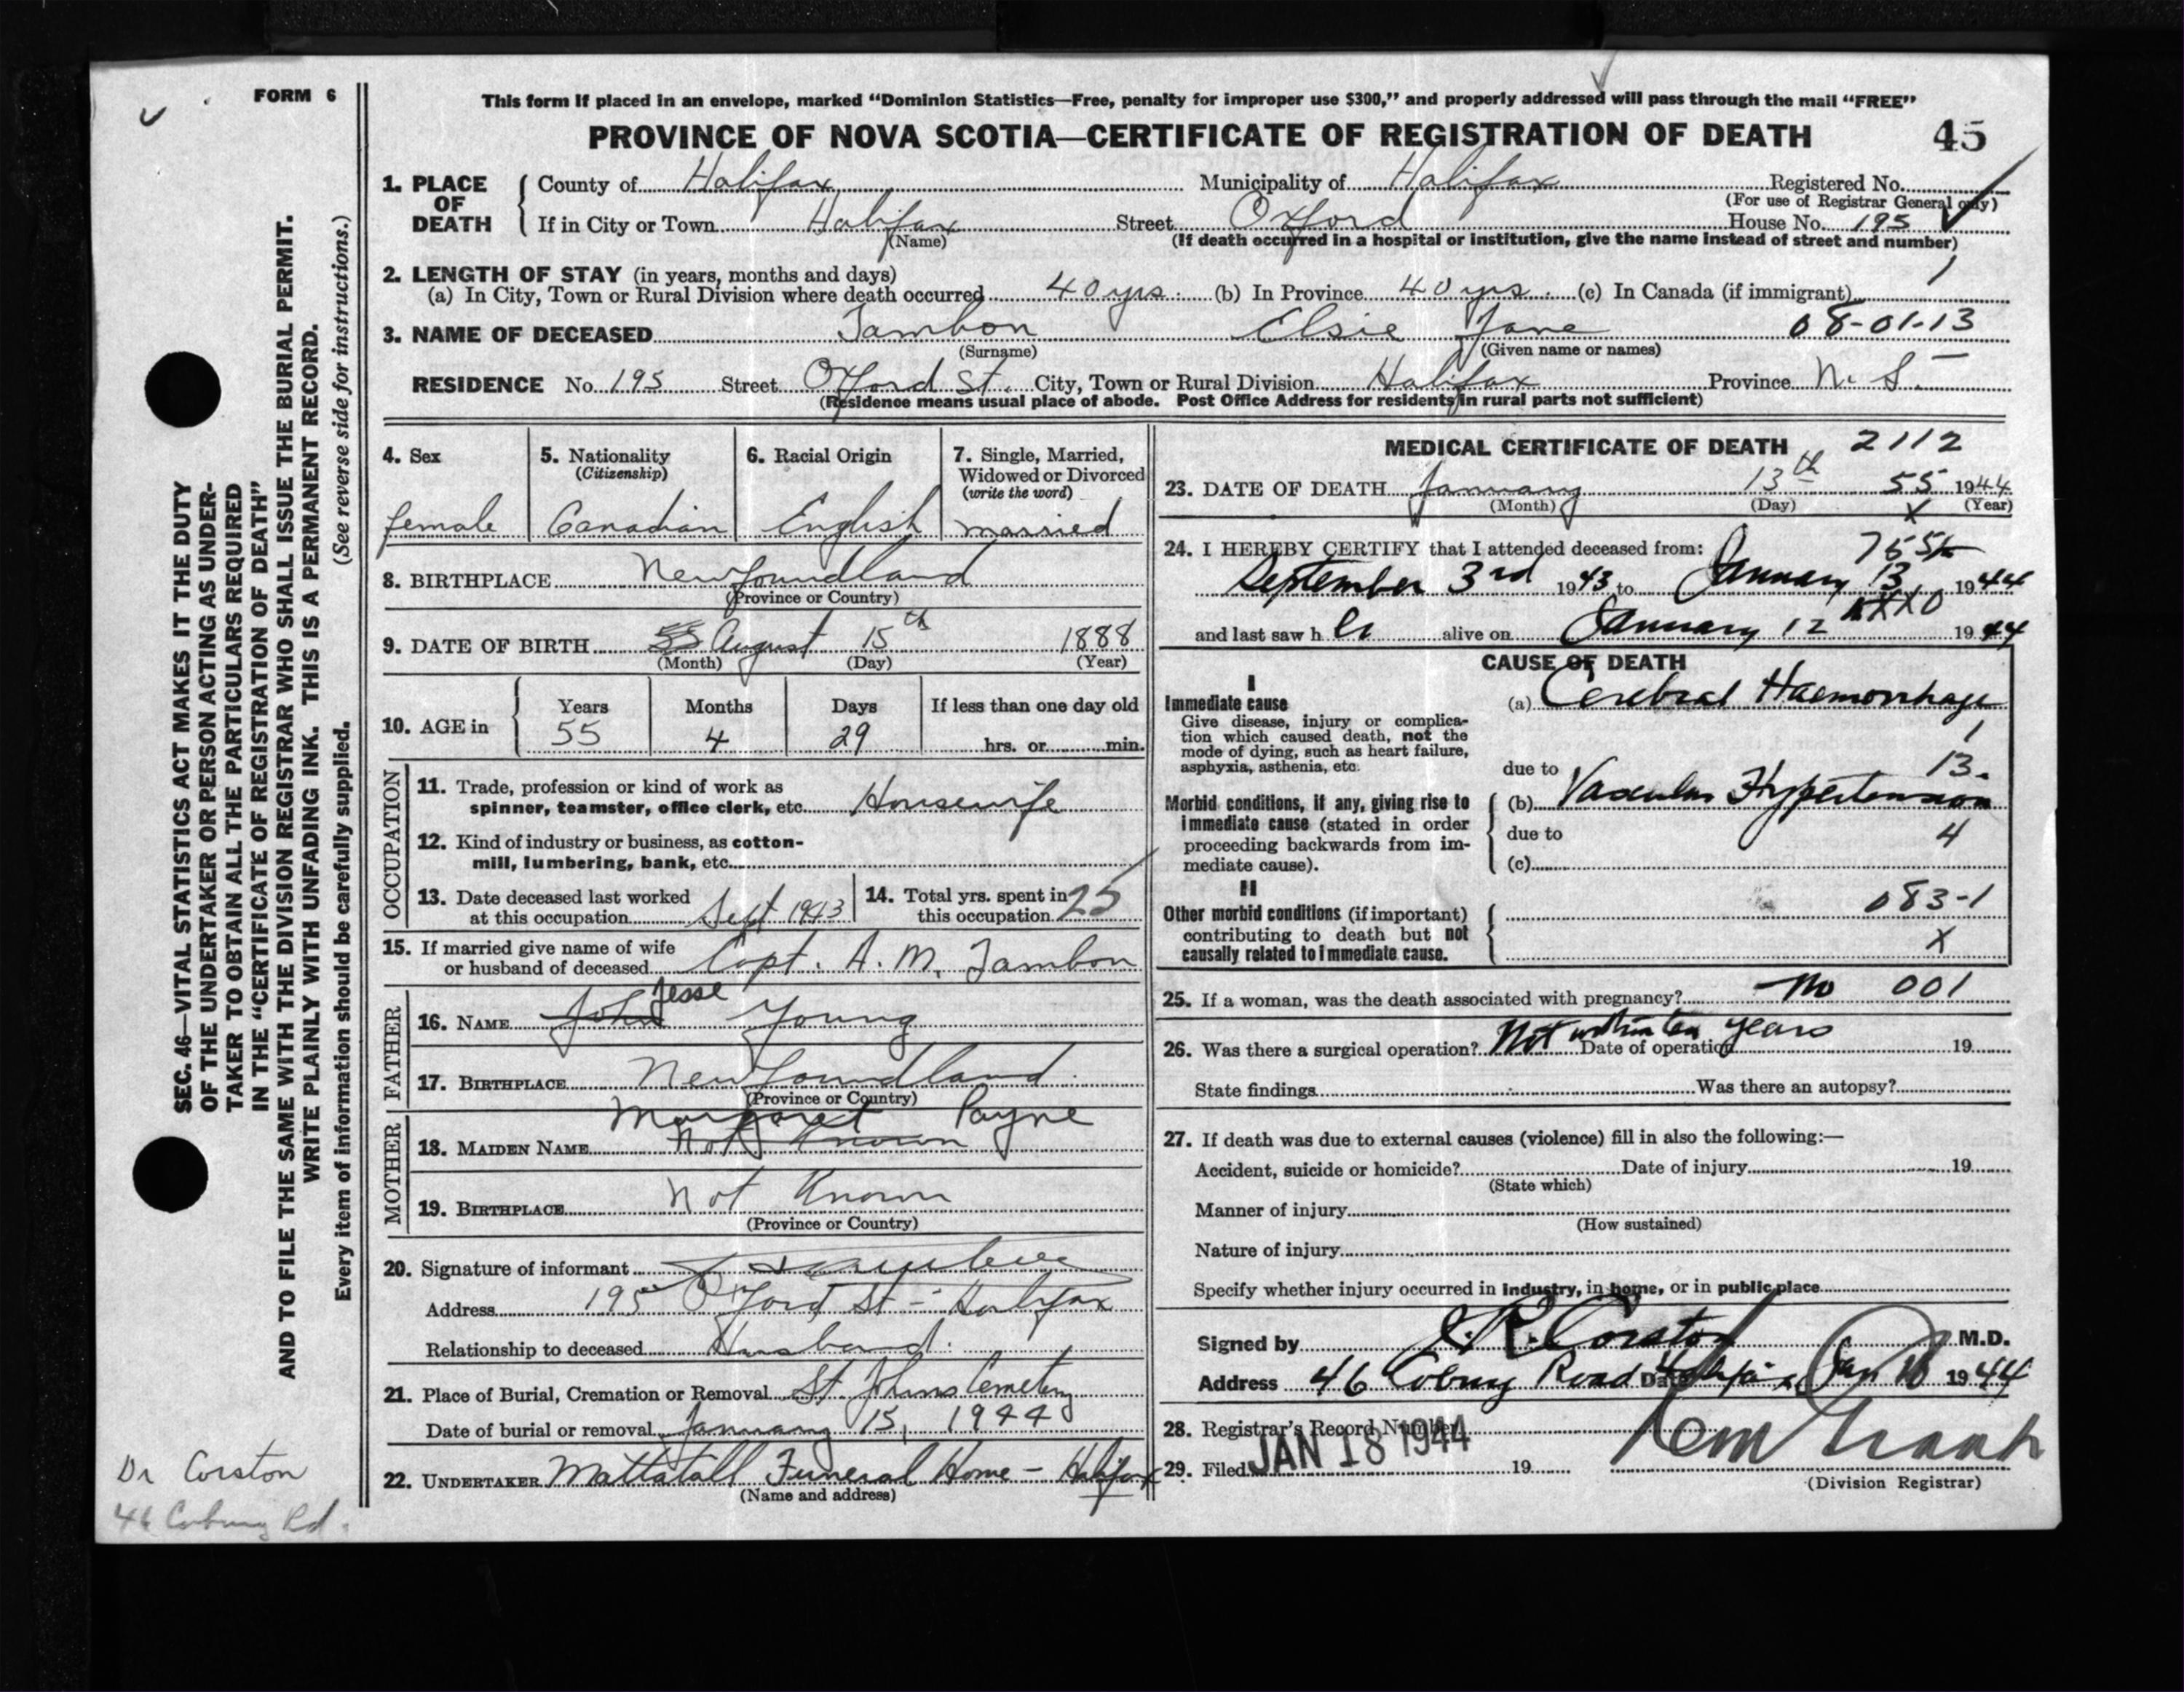 FORM 6
This form if placed in an envelope, marked "Dominion Statistics—Free, penalty for improper use $300," and properly addressed will pass through the mail "FREE"
PROVINCE OF NOVA SCOTIA—CERTIFICATE OF REGISTRATION OF DEATH 45
1. PLACE OF DEATH County of Halifax Municipality of Halifax Registered No.
(For use of Registrar General only)
If in City or Town Halifax Street Oxford House No. 195
(Name) (If death occurred in a hospital or institution, give the name instead of street and number)
2. LENGTH OF STAY (in years, months and days) 1
(a) In City, Town or Rural Division where death occurred 40 yrs. (b) In Province 40 yrs. (c) In Canada (if immigrant)
3. NAME OF DECEASED Tambon Elsie Jane 08-01-13
(Surname) (Given name or names)
RESIDENCE No. 195 Street Oxford St. City, Town or Rural Division Halifax Province N. S.
(Residence means usual place of abode. Post Office Address for residents in rural parts not sufficient)
4. Sex female
5. Nationality (Citizenship) Canadian
6. Racial Origin English
7. Single, Married, Widowed or Divorced (write the word) married
8. BIRTHPLACE Newfoundland
(Province or Country)
9. DATE OF BIRTH August 15th 1888
(Month) (Day) (Year)
10. AGE in Years 55 Months 4 Days 29 If less than one day old hrs. or min.
OCCUPATION
11. Trade, profession or kind of work as
spinner, teamster, office clerk, etc. Housewife
12. Kind of industry or business, as cotton-
mill, lumbering, bank, etc.
13. Date deceased last worked
at this occupation Sept 1943
14. Total yrs. spent in
this occupation 25
15. If married give name of wife
or husband of deceased Capt. A. M. Tambon
FATHER
16. NAME John Jesse Young
17. BIRTHPLACE Newfoundland
(Province or Country)
MOTHER
Margaret Payne
18. MAIDEN NAME Not Known
19. BIRTHPLACE Not Known
(Province or Country)
20. Signature of informant
Address 195 Oxford St - Halifax
Relationship to deceased Husband.
21. Place of Burial, Cremation or Removal St. Johns Cemetery
Date of burial or removal January 15, 1944
22. UNDERTAKER Mattatall Funeral Home - Halifax
(Name and address)
MEDICAL CERTIFICATE OF DEATH 2112
23. DATE OF DEATH January 13th 55 1944
(Month) (Day) X (Year)
24. I HEREBY CERTIFY that I attended deceased from:
September 3rd 1943 to January 13 1944
and last saw h er alive on January 12 1944
CAUSE OF DEATH
I
Immediate cause (a) Cerebral Haemorrhage
Give disease, injury or complica-
tion which caused death, not the
mode of dying, such as heart failure,
asphyxia, asthenia, etc.
1
due to 13.
Morbid conditions, if any, giving rise to
immediate cause (stated in order
proceeding backwards from im-
mediate cause).
(b) Vascular Hypertension
due to 4
(c)
II
083-1
Other morbid conditions (if important)
contributing to death but not
causally related to immediate cause.
X
25. If a woman, was the death associated with pregnancy? No 001
26. Was there a surgical operation? Not within ten years Date of operation 19
State findings Was there an autopsy?
27. If death was due to external causes (violence) fill in also the following:—
Accident, suicide or homicide? Date of injury 19
(State which)
Manner of injury
(How sustained)
Nature of injury
Specify whether injury occurred in industry, in home, or in public place
Signed by J. R. Corston M.D.
Address 46 Coburg Road Halifax Date Jan 1944
28. Registrar's Record Number
29. Filed JAN 18 1944 19
(Division Registrar)
SEC. 46—VITAL STATISTICS ACT MAKES IT THE DUTY
OF THE UNDERTAKER OR PERSON ACTING AS UNDER-
TAKER TO OBTAIN ALL THE PARTICULARS REQUIRED
IN THE "CERTIFICATE OF REGISTRATION OF DEATH"
AND TO FILE THE SAME WITH THE DIVISION REGISTRAR WHO SHALL ISSUE THE BURIAL PERMIT.
WRITE PLAINLY WITH UNFADING INK. THIS IS A PERMANENT RECORD.
Every item of information should be carefully supplied. (See reverse side for instructions.)
Dr Corston
46 Coburg Rd.